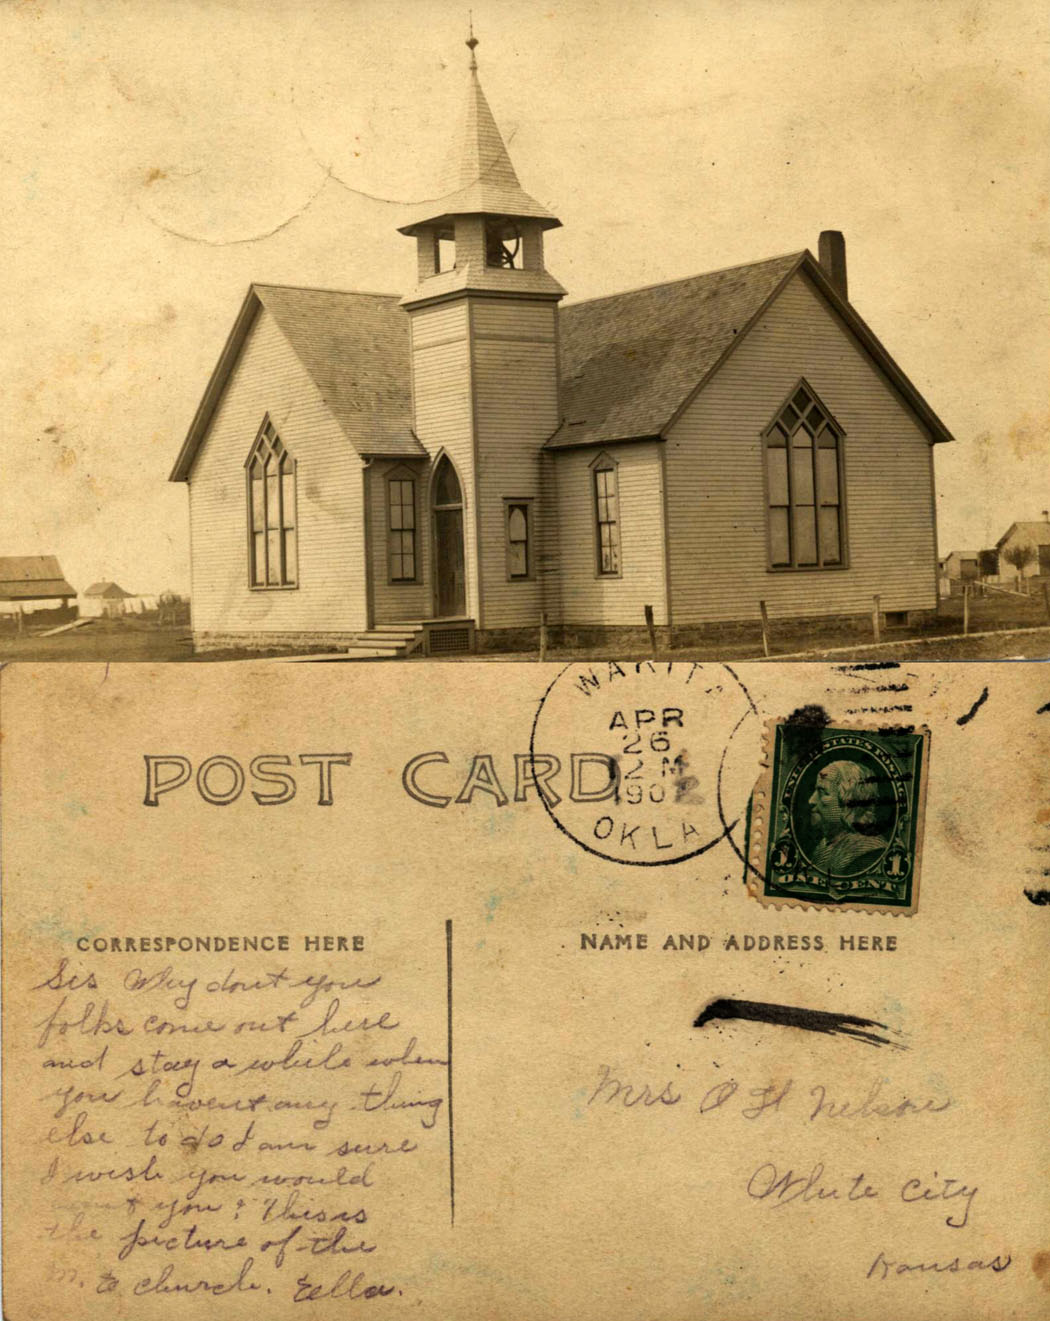 WAKITA
APR
26
2 M
190
OKLA
POST CARD
UNITED STATES POSTAGE
1 1
ONE CENT
CORRESPONDENCE HERE
NAME AND ADDRESS HERE
Sis Why dont you
folks come out here
and stay a while when
you havent any thing
else to do I am sure
I wish you would
you? This is
the picture of the
M. E church. Eella.
Mrs O H Nelson
White City
Kansas